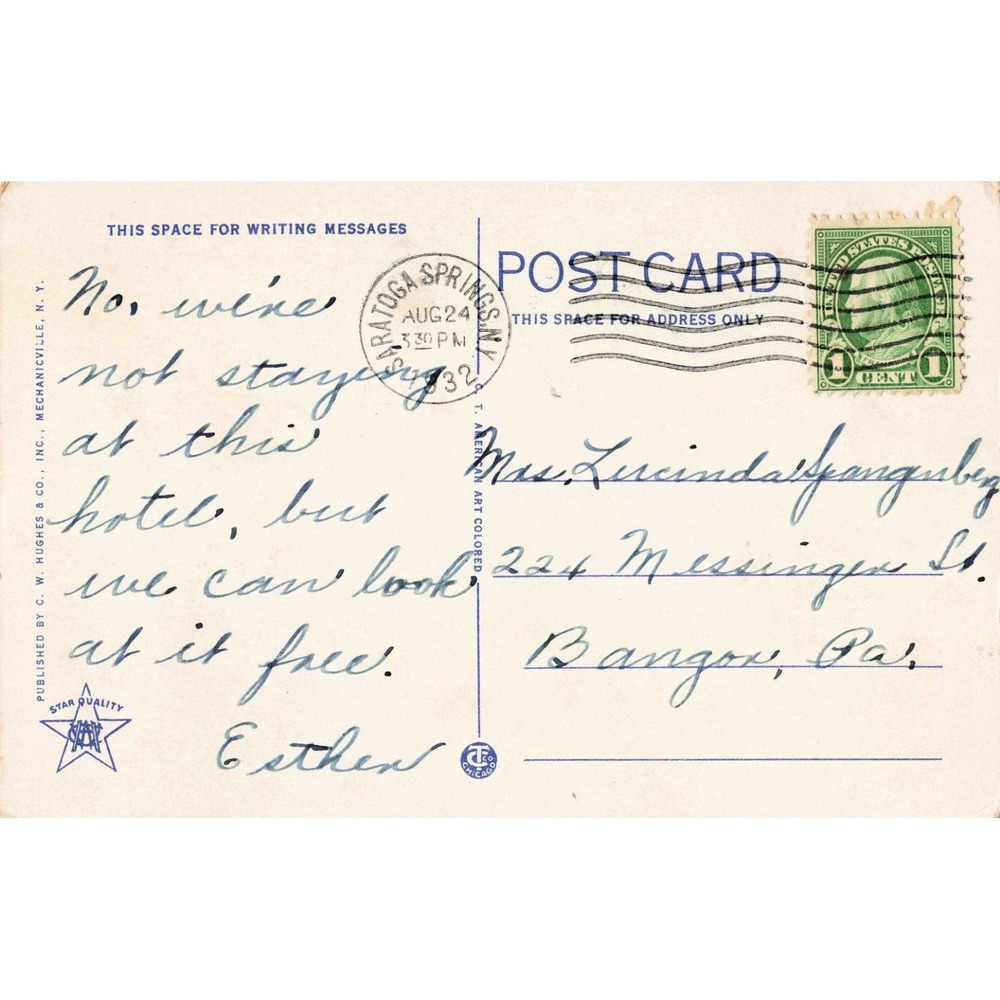 THIS SPACE FOR WRITING MESSAGES
No, we're
not staying
at this
hotel, but
we can look
at it free.
Esther
PUBLISHED BY C. W. HUGHES & CO., INC., MECHANICVILLE, N. Y.
STAR QUALITY
C. T. AMERICAN ART COLORED
CHICAGO
SARATOGA SPRINGS, N.Y.
AUG 24
3 30 PM
1932
POST CARD
THIS SPACE FOR ADDRESS ONLY
UNITED STATES POSTAGE
1 CENT 1
Mrs. Lucinda Spangenberg
224 Messinger St.
Bangor, Pa.